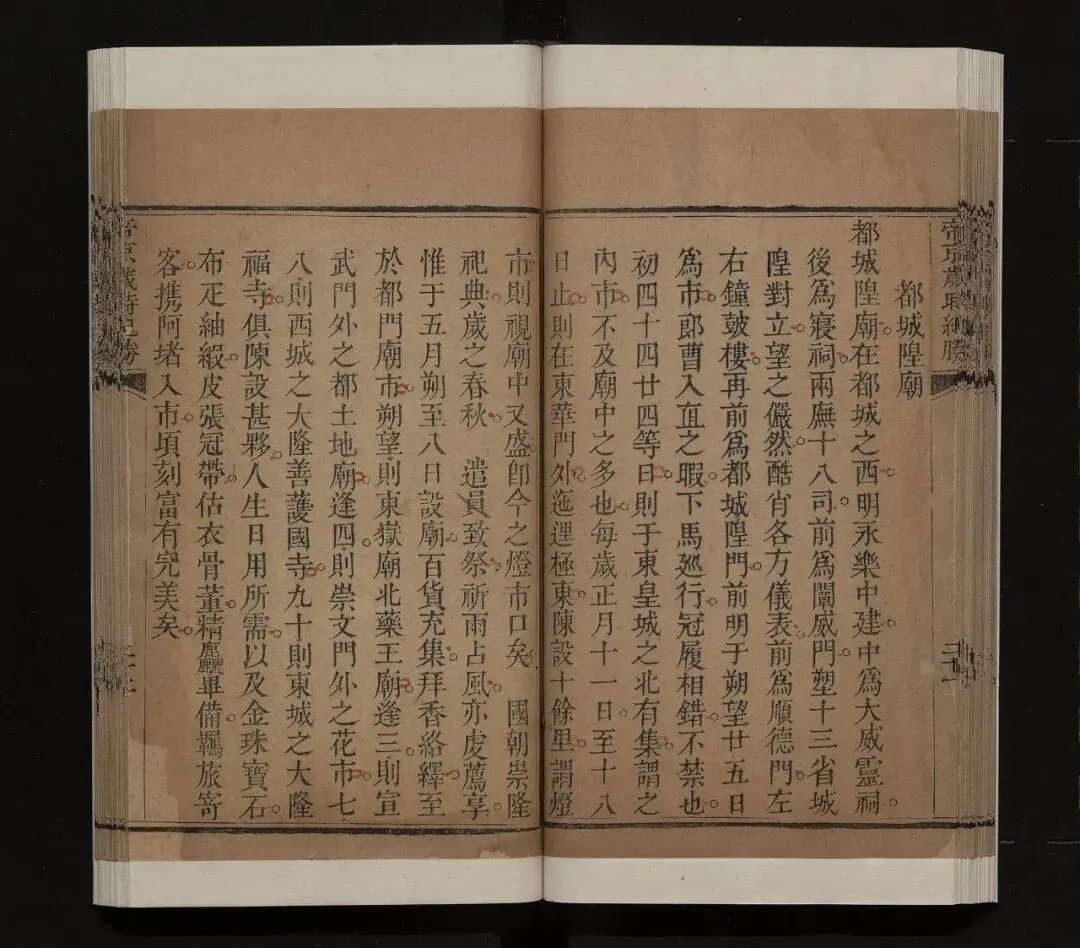 帝京歲時紀勝
都城隍廟
都城隍廟。在都城之西。明永樂中建。中爲大威靈祠。
後爲寢祠。兩廡十八司。前爲闡威門。塑十三省城
隍對立。望之儼然。酷肖各方儀表。前爲順德門。左
右鐘鼓樓。再前爲都城隍門。前明于朔望廿五日
爲市。郎曹入直之暇。下馬巡行。冠履相錯。不禁也。
初四十四廿四等日。則于東皇城之北有集。謂之
內市。不及廟中之多也。每歲正月十一日至十八
日止。則在東華門外。迤邐極東。陳設十餘里。謂燈
市。則視廟中又盛。卽今之燈市口矣。 國朝崇隆
祀典。歲之春秋。 遣員致祭。祈雨占風。亦虔薦享。
惟于五月朔至八日設廟。百貨充集。拜香絡繹。至
於都門廟市。朔望則東嶽廟北藥王廟。逢三則宣
武門外之都土地廟。逢四則崇文門外之花市。七
八則西城之大隆善護國寺。九十則東城之大隆
福寺。俱陳設甚夥。人生日用所需。以及金珠寶石。
布疋紬緞。皮張冠帶。估衣骨董。精麤畢備。羈旅寄
客。携阿堵入市。頃刻富有完美矣。
帝京歲時紀勝